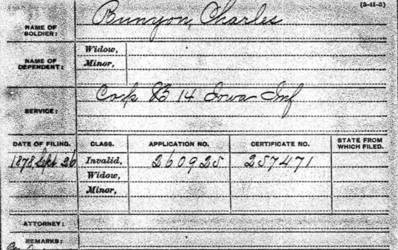 (3-11-3)
NAME OF SOLDIER: Bunyon, Charles
NAME OF DEPENDENT: Widow,
Minor,
SERVICE: 14 Iowa Inf
DATE OF FILING. CLASS. APPLICATION NO. CERTIFICATE NO. STATE FROM WHICH FILED.
1878 Sept 26 Invalid, 260925 257471
Widow,
Minor,
ATTORNEY:
REMARKS: